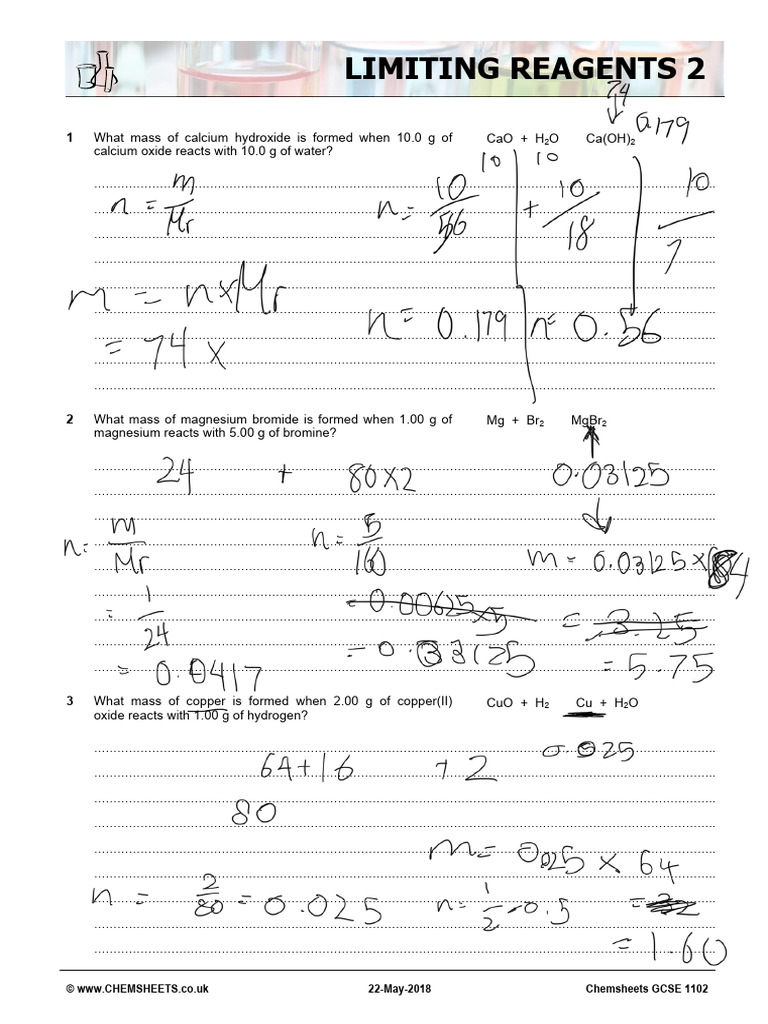 LIMITING REAGENTS 2
74
0.179
1 What mass of calcium hydroxide is formed when 10.0 g of CaO + H₂O Ca(OH)₂
calcium oxide reacts with 10.0 g of water?
10 10
n = m/Mr n = 10/56 + 10/18 10
m = n×Mr n = 0.179 n= 0.56
= 74 ×
2 What mass of magnesium bromide is formed when 1.00 g of Mg + Br₂ MgBr₂
magnesium reacts with 5.00 g of bromine?
24 + 80×2 0.03125
n= m/Mr n = 5/160 m = 0.03125×184
= 1/24 = 0.00625×5 = 3.25
= 0.0417 = 0.03125 = 5.75
3 What mass of copper is formed when 2.00 g of copper(II) CuO + H₂ Cu + H₂O
oxide reacts with 1.00 g of hydrogen?
64+16 + 2 0.025
80
m= 0.025 × 64
n = 2/80 = 0.025 n= 1/2 = 0.5 = 32
= 1.60
© www.CHEMSHEETS.co.uk 22-May-2018 Chemsheets GCSE 1102